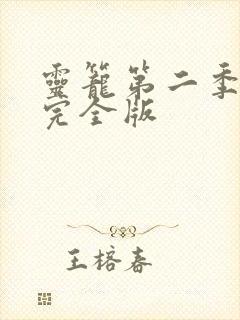 靈籠第二季
完全版
王榕春